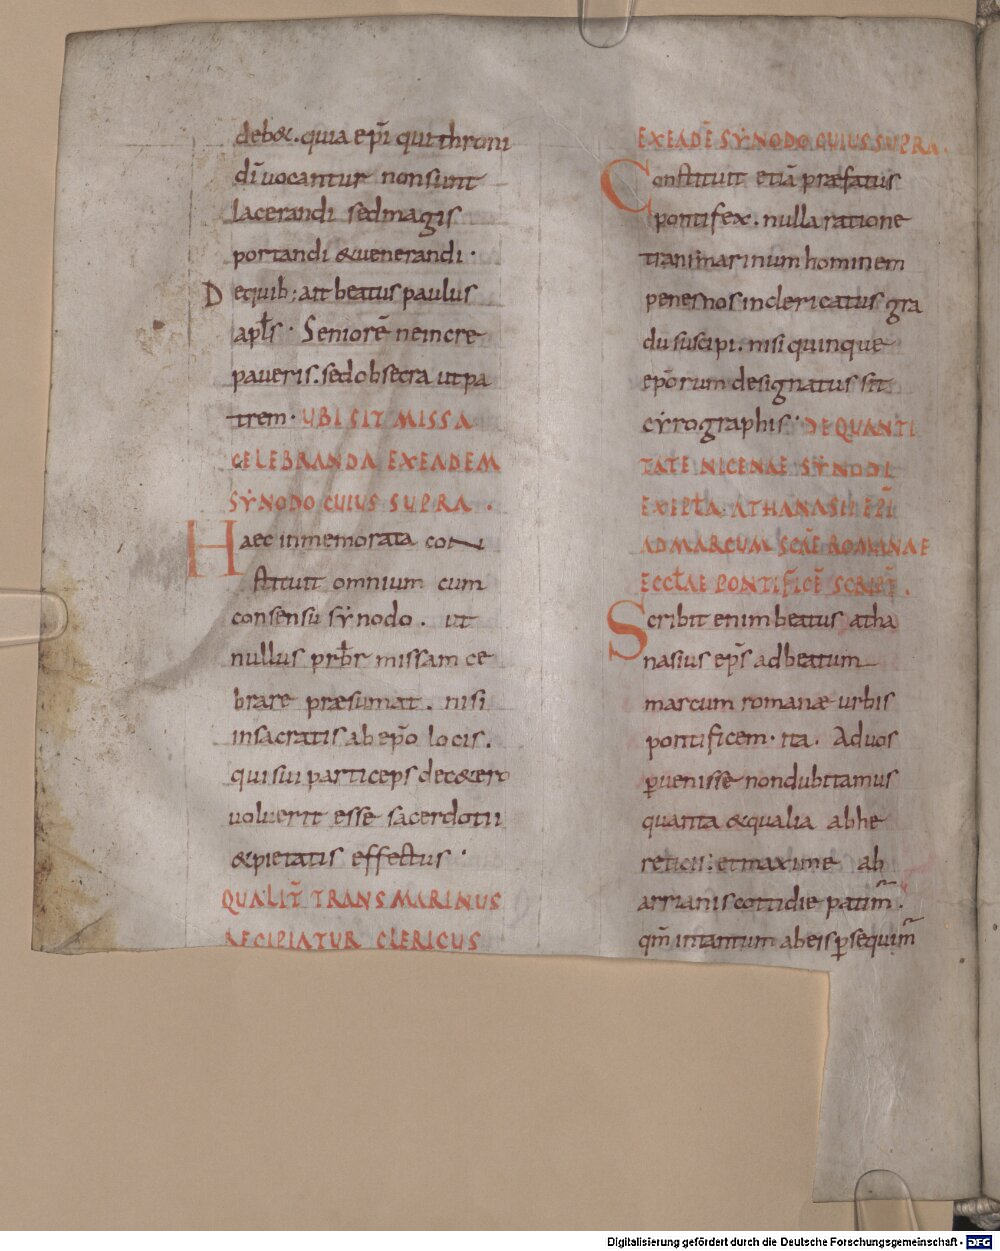 deb&. quia ep̄i qui throni
dī uocantur non sunt
lacerandi sed magis
portandi & uenerandi ·
De quib; ait beatus paulus
apłs · Seniorē ne incre
paueris. sed obsecra ut pa
trem · UBI SIT MISSA
CELEBRANDA EX EADEM
SẎNODO CUIUS SUPRA ·
Haec inmemorata con
stituit omnium cum
consensu sẏnodo . ut
nullus prb̄r missam ce
brare praesumat . nisi
in sacratis ab ep̄o locis .
qui sui particeps dec&ero
uoluerit esse sacerdotii
& pietatis effectus ·
QUALIT̄ TRANSMARINUS
RECIPIATUR CLERICUS
EX EADĒ SẎNODO CUIUS SUPRA .
Constituit etiā praefatus
pontifex . nulla ratione
transmarinum hominem
penes nos in clericatus gra
du suscipi . nisi quinque
ep̄orum designatus sit
cẏrographis · DE QUANTI
TATE NICENAE SẎNODI
EXEPŁA ATHANASII EP̄I
AD MARCUM SCĀE ROMANAE
ECCŁAE PONTIFICĒ SCRIPT̄ .
Scribit enim beatus atha
nasius ep̄s ad beatum
marcum romanae urbis
pontificem · ita . Ad uos
ꝑuenisse non dubitamus
quanta & qualia ab he
reticis: et maxime ab
arrianis cottidie patim̄ .
qm̄ in tantum ab eis ꝑsequim̄
Digitalisierung gefördert durch die Deutsche Forschungsgemeinschaft - DFG